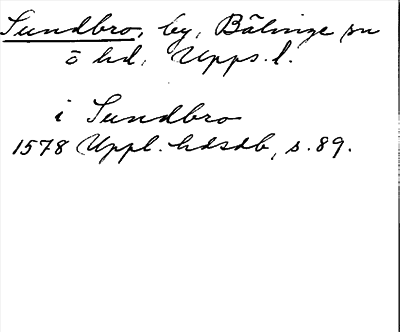 Sundbro, by, Bälinge sn
ö hd, Upps. l.
i Sundbro
1578 Uppl. hdsdb, s. 89.